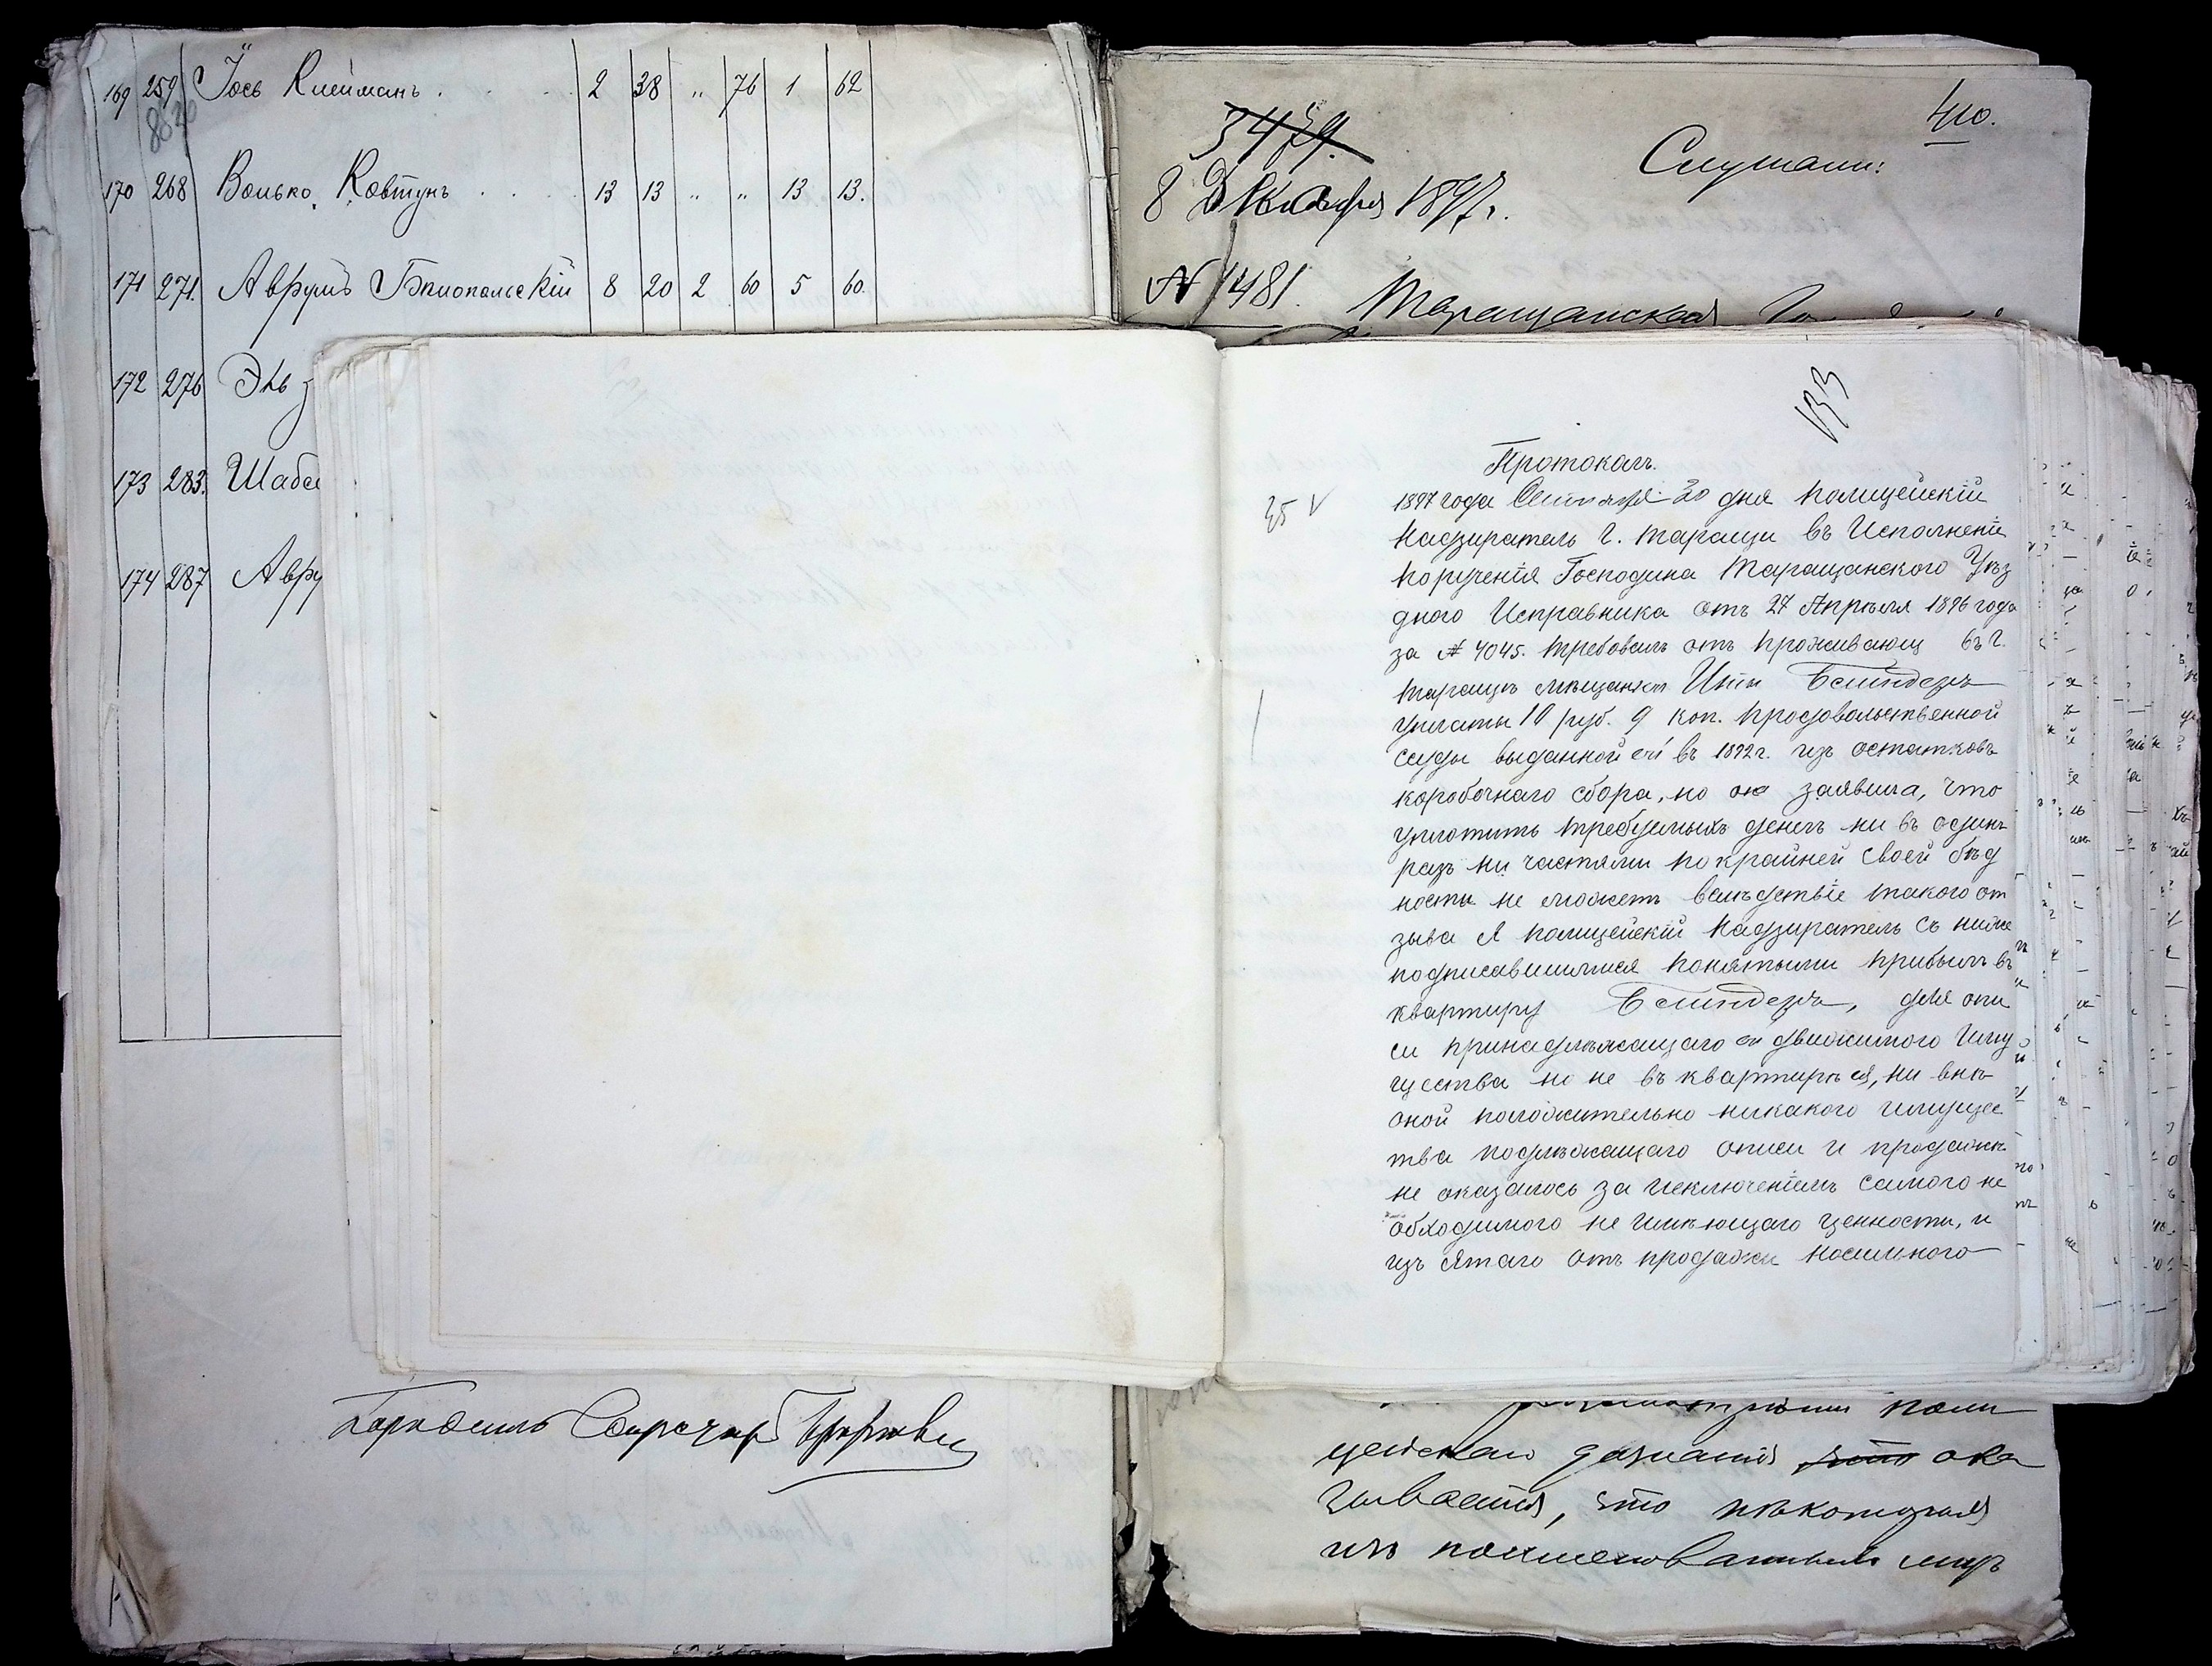 169 259 Іось Клейманъ . . . . 2 38 „ 76 1 62
170 268 Волько Ковтунъ . . . 13 13 „ „ 13 13.
171 271. Аврумъ Бялопольскій 8 20 2 60 5 60.
172 276
173 283. Шабсе
174 287 Авру
410.
Слушали:
8 Декабря 1897 г.
№ 1481.
Таращанская
133
Протоколъ.
1897 года Сентября 30 дня Полицейскій
Надзиратель г. Таращи въ Исполненіе
порученія Господина Таращанского Уѣз
дного Исправника отъ 27 Апрѣля 1896 года
за № 4045. требовалъ отъ проживающ въ г.
Таращѣ мѣщанки
уплаты 10 руб. 9 коп. продовольственной
ссуды выданной ей въ 1892 г. изъ остатковъ
коробочнаго сбора, но она заявила, что
уплотить требуемыхъ денегъ ни въ одинъ
разъ ни частями по крайней своей бѣд
ности не можетъ вслѣдствіе такого от
зыва Я полицейскій Надзиратель съ ниже
подписавшимися понятыми прибылъ въ
квартиру для опи
си принадлѣжащаго ей движимого Иму
щества но не въ квартирѣ ея, ни внѣ
оной положительно никакого имущес
тва подлѣжащаго описи и продажѣ
не оказалось за исключеніемъ самого не
обходимого не имѣющаго ценности, и
изъ ятаго отъ продажи носильного
поли
цейскаго дознанія что ока
зывается, что нѣкоторыя
изъ поименованныхъ лицъ